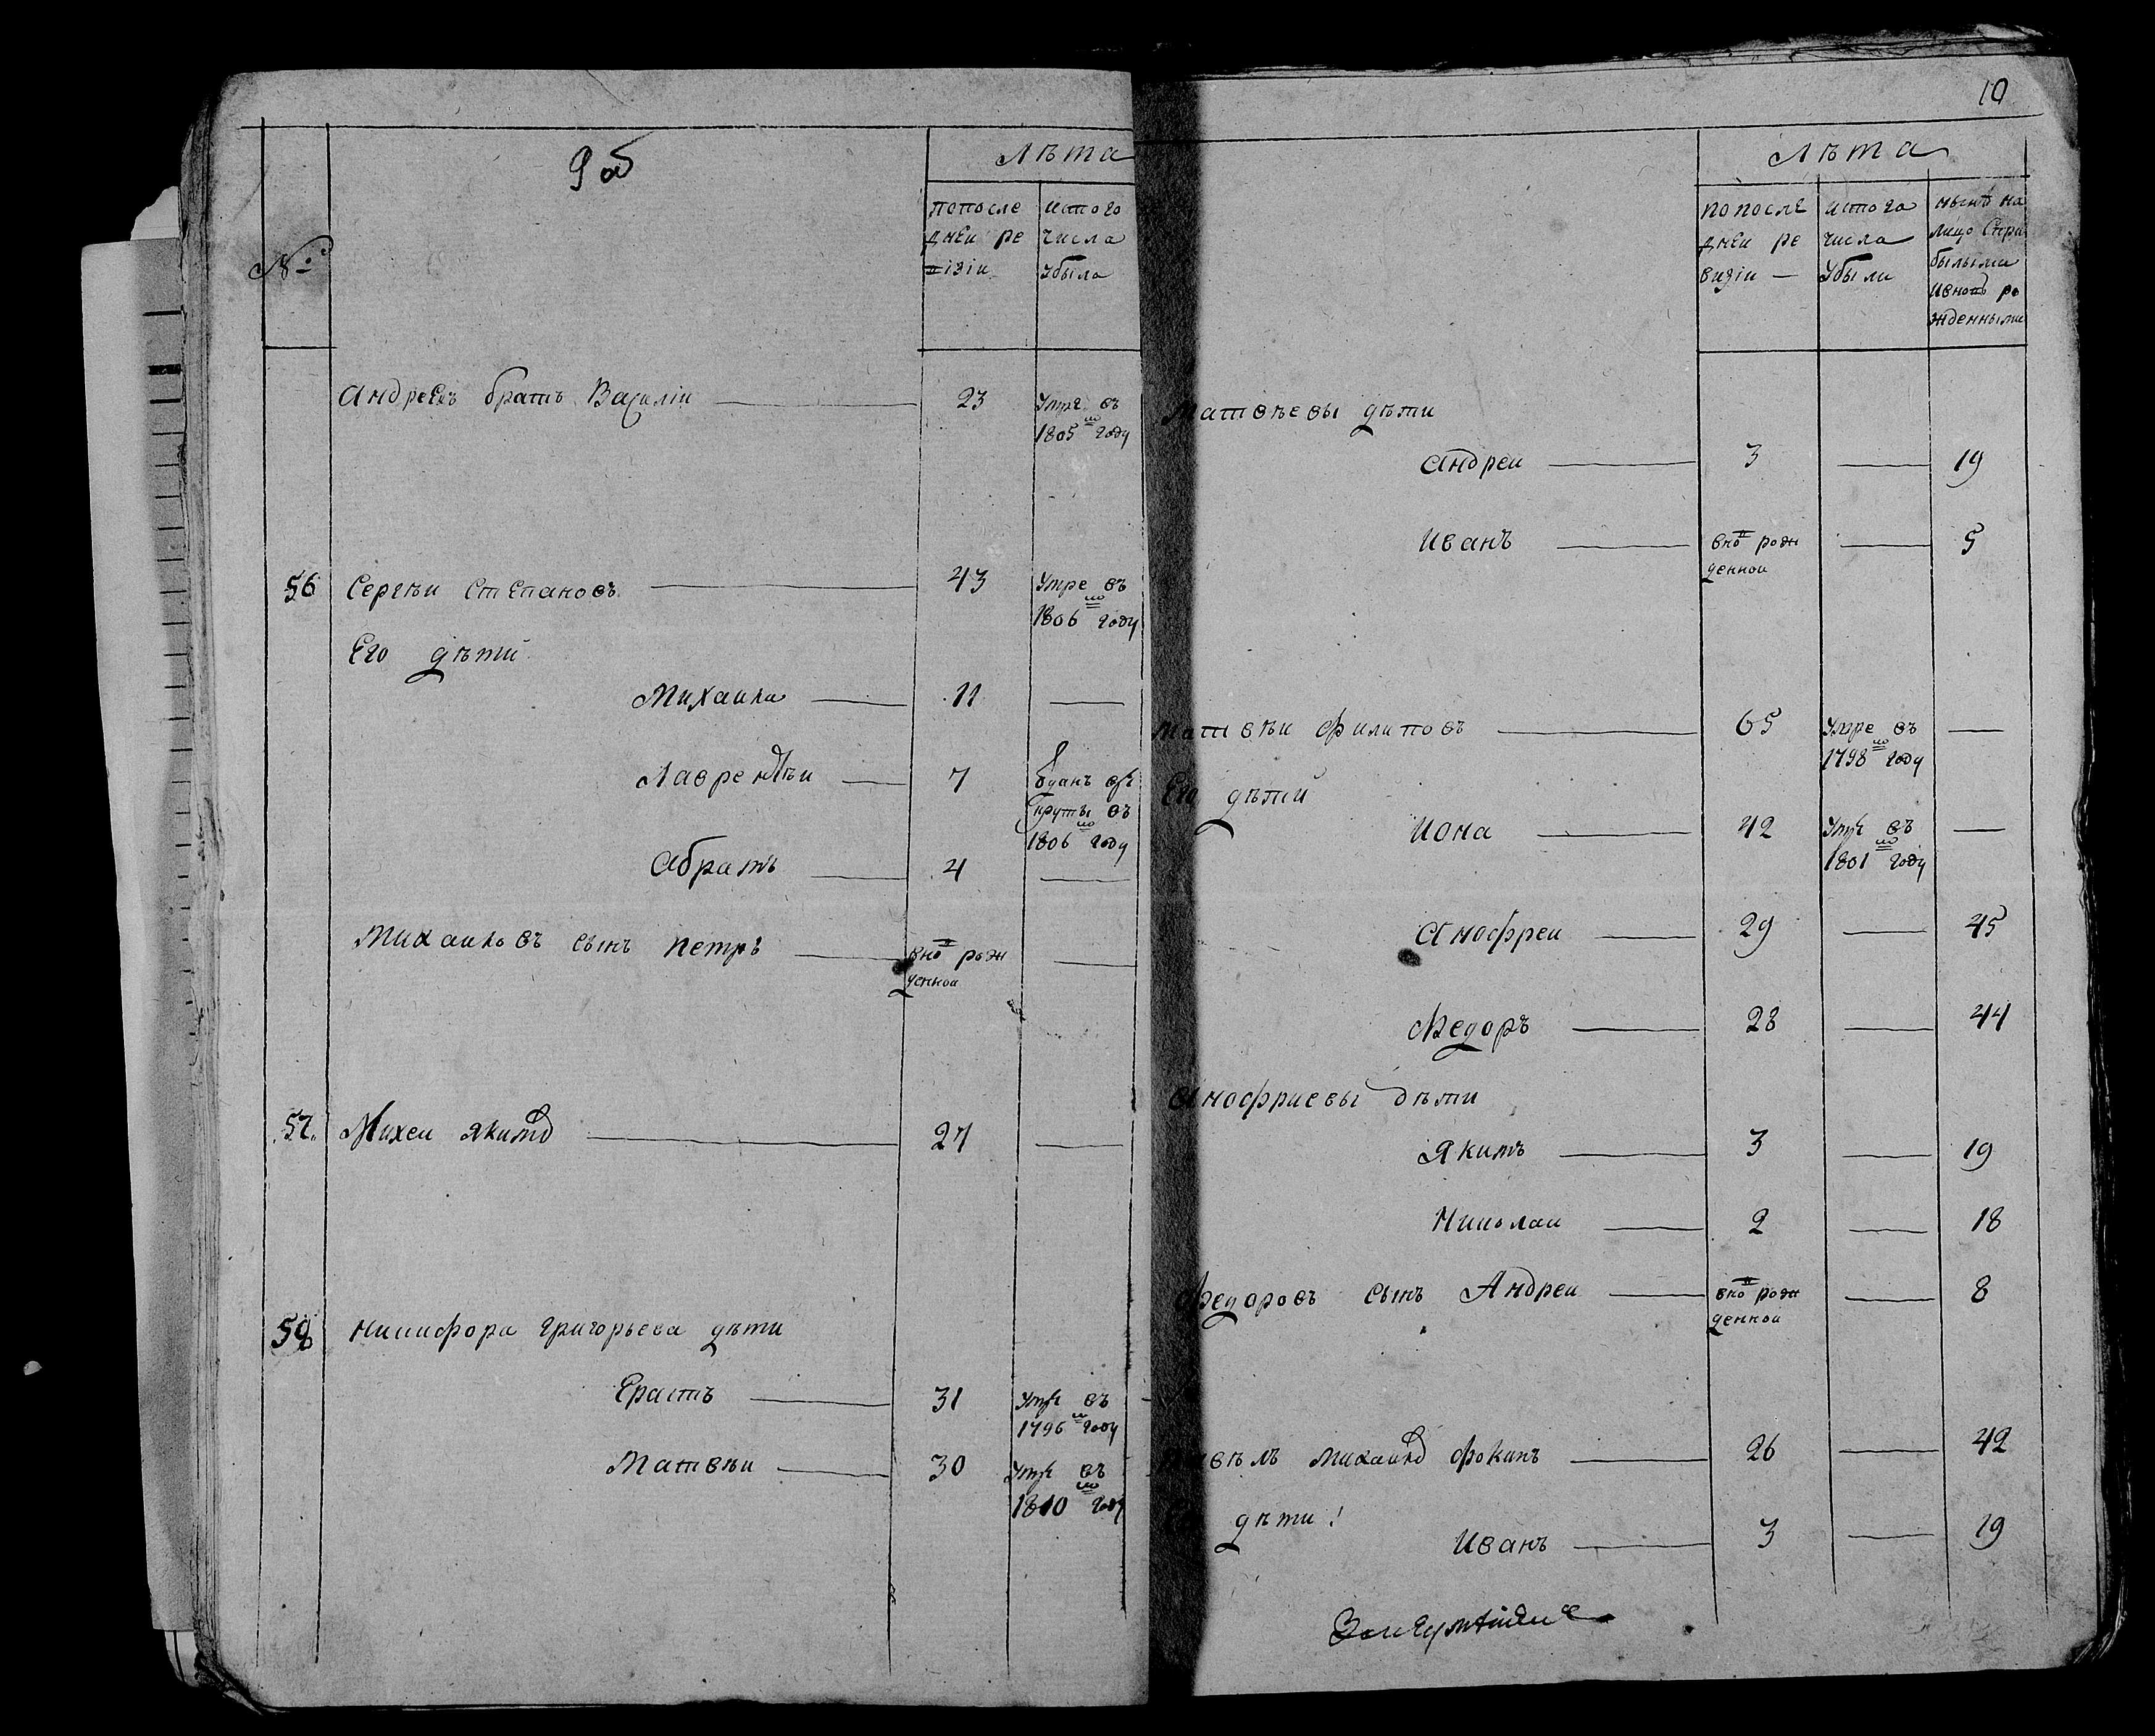 9 об
№
Лѣта
попосле
дней ре
візіи
истого
числа
убыло
Андреевъ братъ Василіи 23 умре въ
1805 мъ году
56 Сергѣи Степановъ 43 умре въ
1806 мъ году
Его дѣти
Михаила 11
Лаврентѣи 7 отданъ врѣ
круты въ
1806 году
Абрамъ 4
Михаиловъ сынъ Петръ вновь рож
денной
57 Михеи Якимовъ 27
58 Никифора Григорьева дѣти
Ерастъ 31 умре въ
1796 году
Матвѣи 30 умре въ
1810 году
10
Лѣта
попосле
дней ре
визіи
истого
числа
убыли
нынѣ на
лицо Спри
былыми
ивновь ро
жденными
Матвѣевы дѣти
Андреи 3 19
Иванъ вновь рож
денной 5
Матвѣи Филиповъ 65 умре въ
1798 мъ году
Его дѣти
Иона 42 умре въ
1801 мъ году
Анофреи 29 45
Федоръ 28 44
Анофриевы дѣти
Якимъ 3 19
Николаи 2 18
Федоровъ сынъ Андреи вновь рож
денной 8
Михаиловъ Фокинъ 26 42
дѣти
Иванъ 3 19